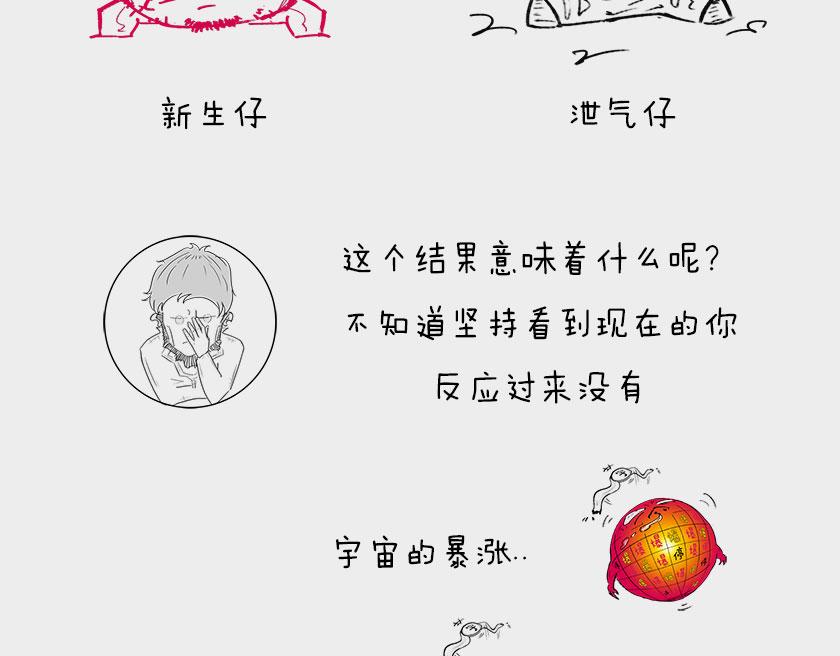 新生仔 泄气仔
这个结果意味着什么呢?
不知道坚持看到现在的你
反应过来没有
宇宙的暴涨..
爆 爆 爆 爆 停 停 爆 爆